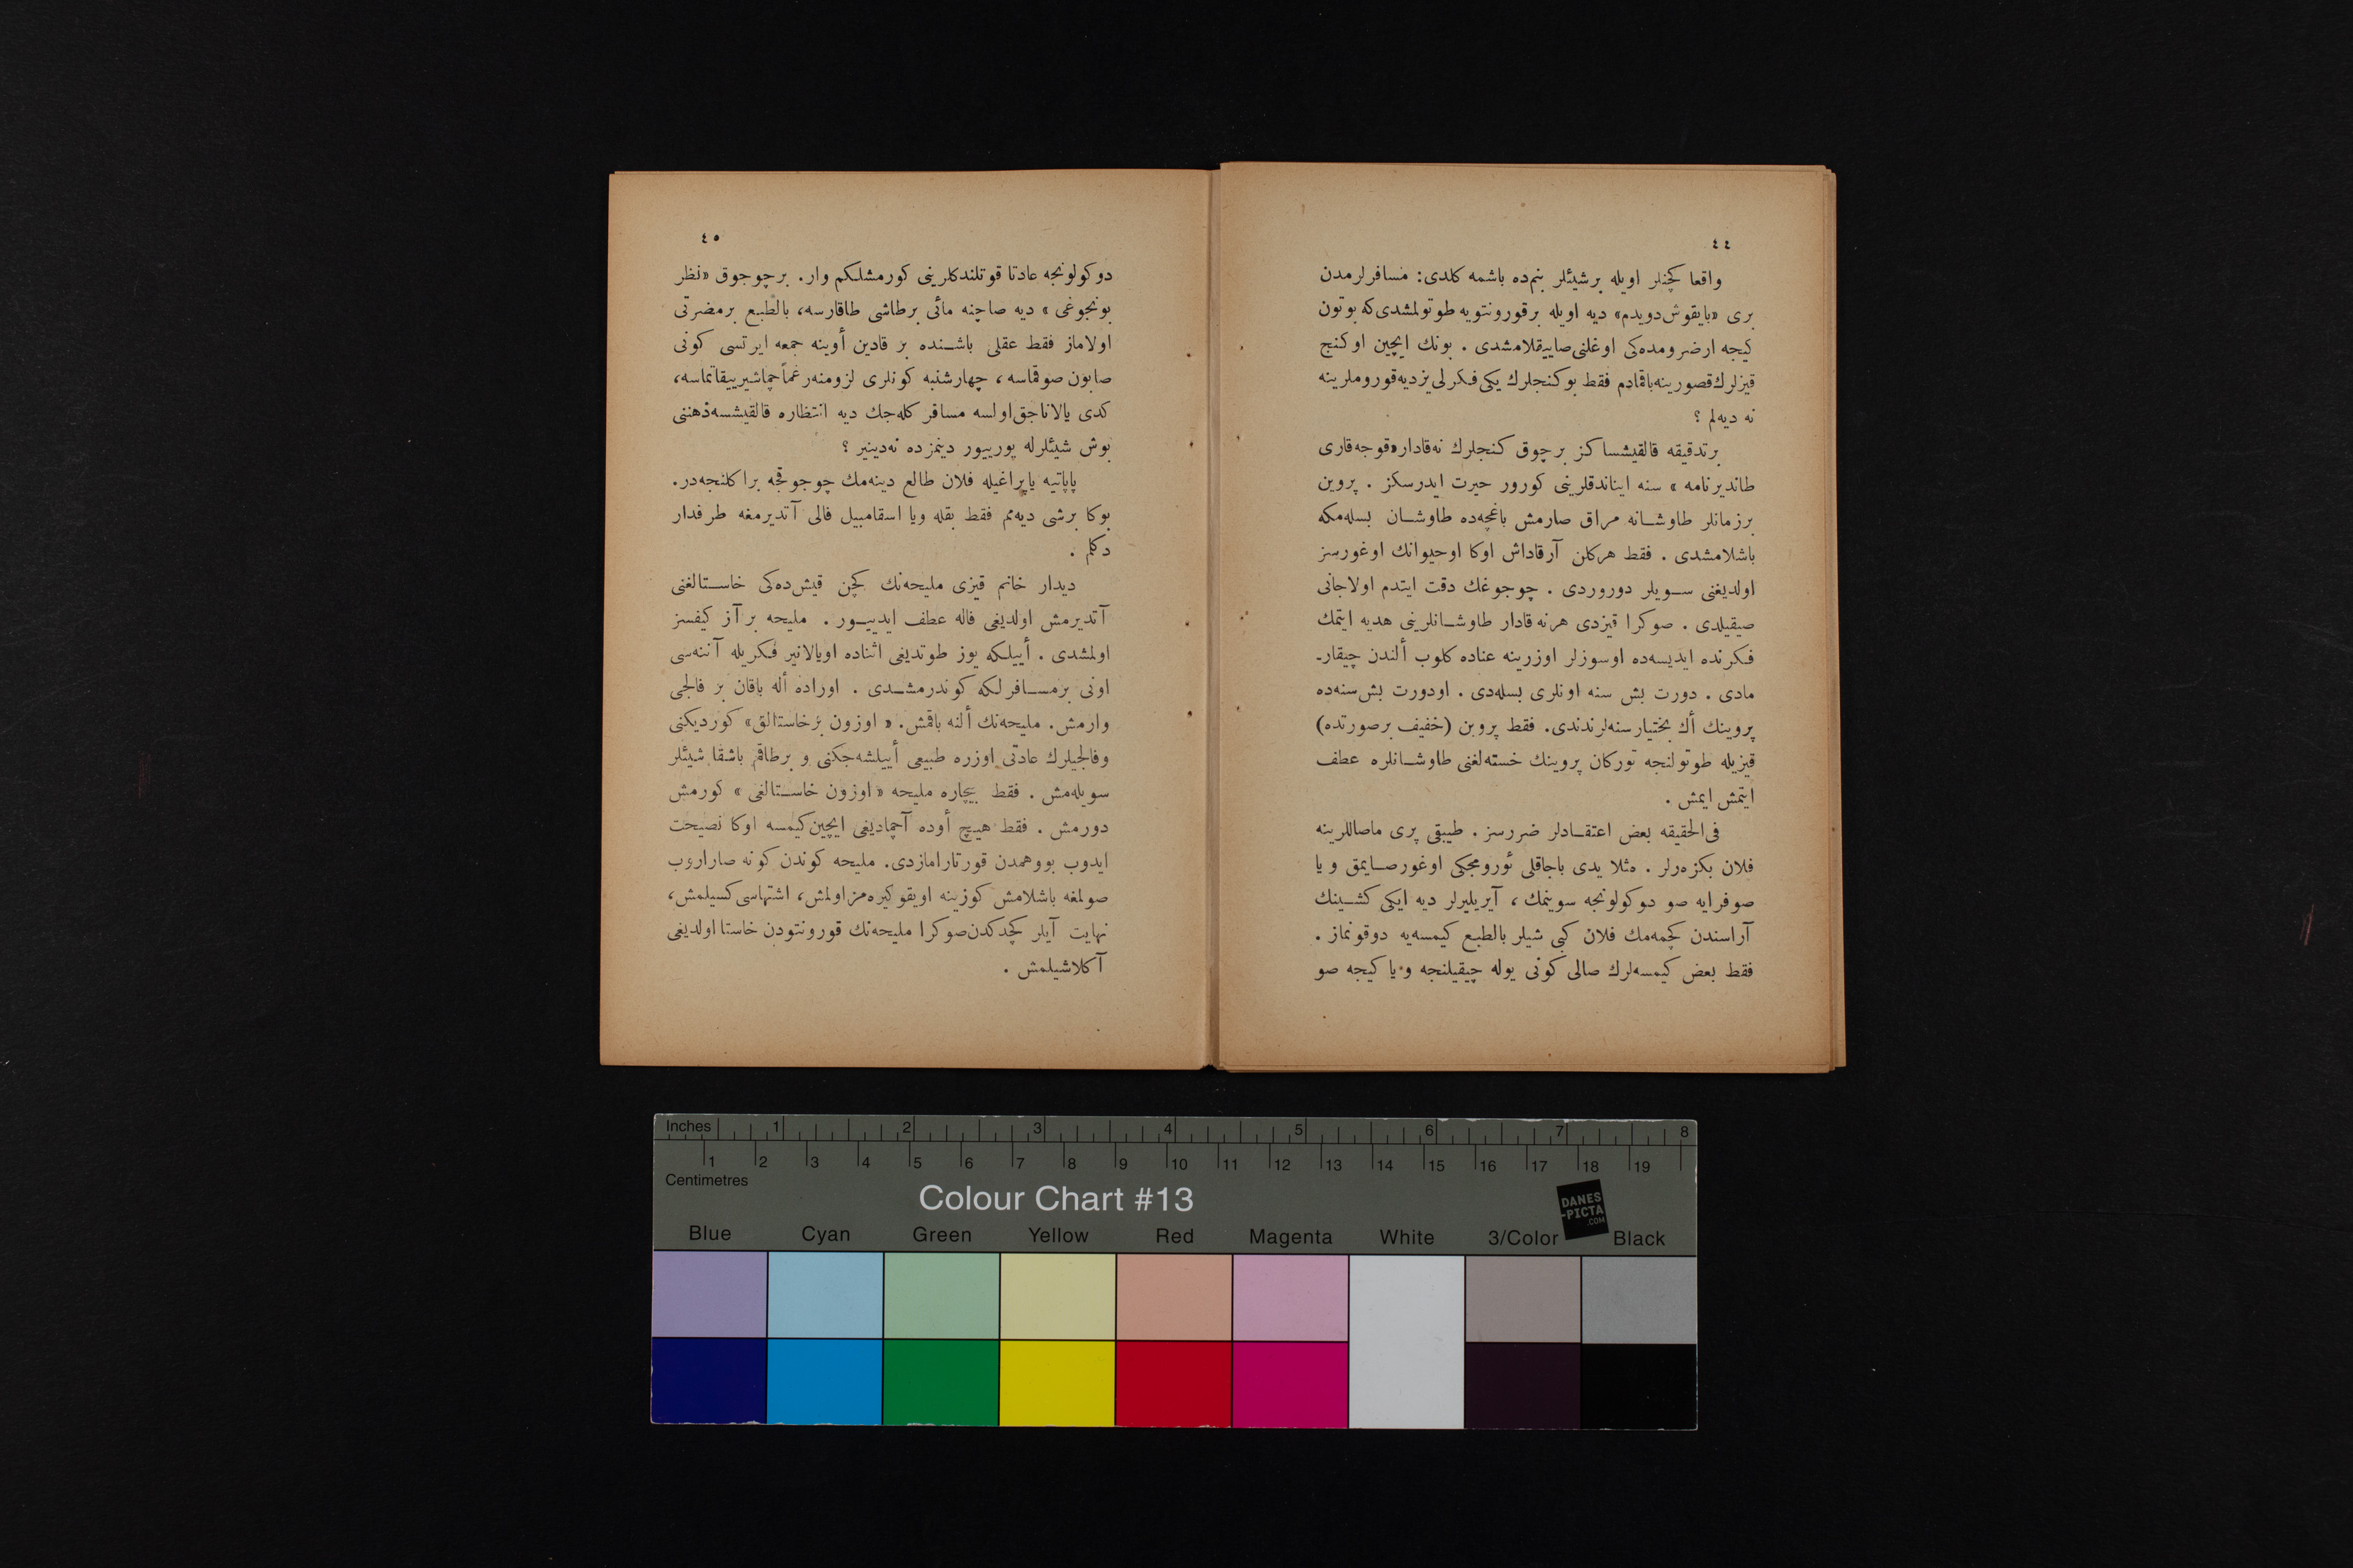 ٤٤
واقعا كچنلر اويله برشيئلر بنم‌ده باشمه كلدى: مسافرلرمدن
برى «بايقوش دويدم» ديه اويله برقورونتويه طوتولمشدى كه بوتون
كيجه ارضرومده‌كى اوغلنى صاييقلامشدى . بونك ايچين اوكنج
قيزلرك قصورينه باقمادم فقط بوكنجلرك يكى فكرلى يز ديه قوروملرينه
نه ديه‌لم ؟
برتدقيقه قالقيشساكز برچوق كنجلرك نه‌قادار «قوجه قارى
طانديرنامه » سنه ايناندقلرينى كورور حيرت ايدرسكز . پروين
برزمانلر طاوشـانه مراق صارمش باغچه‌ده طاوشـان بسله‌مكه
باشلامشدى . فقط هركلن آرقاداش اوكا اوحيوانك اوغورسز
اولديغنى سـويلر دوروردى . چوجوغك دقت ايتدم اولاجانى
صيقيلدى . صوكرا قيزدى هرنه قادار طاوشـانلرينى هديه ايتمك
فكرنده ايديسه‌ده اوسوزلر اوزرينه عناده كلوب ألندن چيقار-
مادى . دورت بش سنه اونلرى بسله‌دى . اودورت بش سنه‌ده
پروينك أك بختيار سنه‌لرندندى. فقط پروين (خفيف برصورتده)
قيزيله طوتولنجه توركان پروينك خسته‌لغنى طاوشـانلره عطف
ايتمش ايمش .
فى‌الحقيقه بعض اعتقـادلر ضررسز . طيبقى پرى ماصاللرينه
فلان بكزه‌رلر . مثلا يدى باجاقلى ئورومجكى اوغورصـايمق و يا
صوفرايه صو دوكولونجه سوينمك ، آيريليرلر ديه ايكى كشـينك
آراسندن كچمه‌مك فلان كبى شيلر بالطبع كيمسه‌يه دوقونماز .
فقط بعض كيمسه‌لرك صالى كونى يوله چيقيلنجه و يا كيجه صو
٤٥
دوكولونجه عادتا قوتلندكلرينى كورمشلكم وار. برچوجوق «نظر
بونجوغى » ديه صاچنه مائى برطاشى طاقارسه، بالطبع برمضرتى
اولاماز فقط عقلى باشـنده بر قادين أوينه جمعه ايرتسى كونى
صابون صوقماسه ، چهارشنبه كونلرى لزومنه رغماً چماشير ييقاتماسه،
كدى يالاناجق اولسه مسافر كله‌جك ديه انتظاره قالقيشسه ذهننى
بوش شيئلرله يورييور دينمزده نه‌دينير ؟
پاپاتيه ياپراغيله فلان طالع دينه‌مك چوجوقجه براكلنجه‌در.
بوكا برشى ديه‌مم فقط بقله ويا اسقامبيل فالى آتديرمغه طرفدار
دكلم .
ديدار خانم قيزى مليحه‌نك كچن قيش ده‌كى خاسـتالغنى
آتديرمش اولديغى فاله عطف ايدييـور . مليحه بر آز كيفسز
اولمشدى . أييلكه يوز طوتديغى اثناده اويالانير فكريله آننه‌سى
اونى برمسـافرلكه كوندرمشـدى . اوراده أله باقان بر فالجى
وارمش. مليحه‌نك ألنه باقمش. « اوزون برخاستالق» كورديكنى
وفالجيلرك عادتى اوزره طبيعى أييلشه‌جكنى و برطاقم باشقا شيئلر
سويله‌مش . فقط بيچاره مليحه « اوزون خاسـتالغى » كورمش
دورمش . فقط هيچ أوده آچماديغى ايچين كيمسه اوكا نصيحت
ايدوب بووهمدن قورتارامازدى. مليحه كوندن كونه صاراروب
صولمغه باشلامش كوزينه اويقو كيره‌مز اولمش، اشتهاسى كسيلمش،
نهايت آيلر كچدكدن صوكرا مليحه‌نك قورونتودن خاستا اولديغى
آكلاشيلمش .
Inches 1 2 3 4 5 6 7 8
1 2 3 4 5 6 7 8 9 10 11 12 13 14 15 16 17 18 19
Centimetres
Colour Chart #13
DANES
-PICTA
.COM
Blue Cyan Green Yellow Red Magenta White 3/Color Black